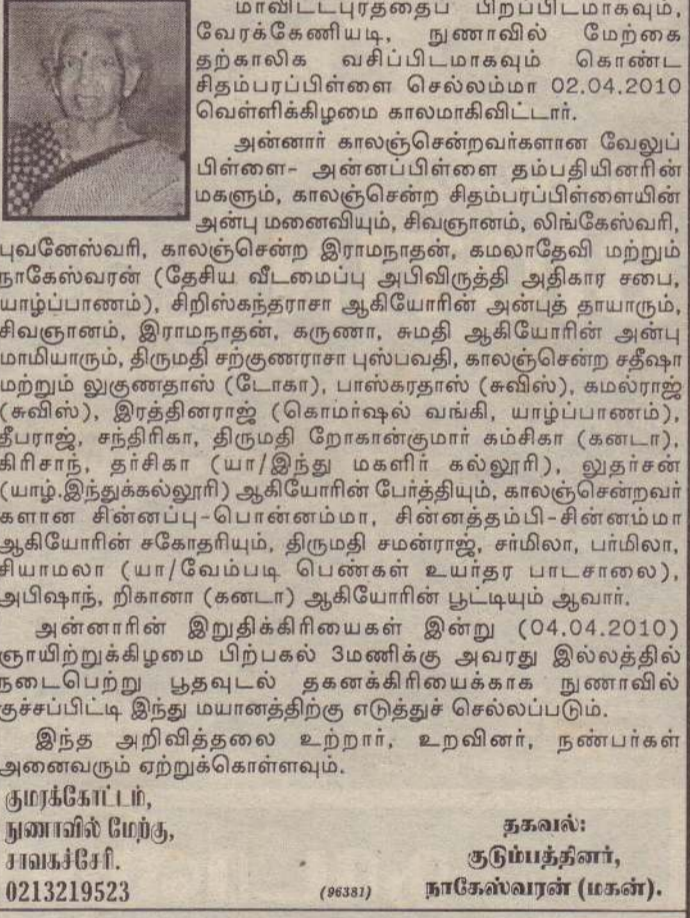 மாவிட்டபுரத்தைப் பிறப்பிடமாகவும்,
வேரக்கேணியடி, நுணாவில் மேற்கை
தற்காலிக வசிப்பிடமாகவும் கொண்ட
சிதம்பரப்பிள்ளை செல்லம்மா 02.04.2010
வெள்ளிக்கிழமை காலமாகிவிட்டார்.
அன்னார் காலஞ்சென்றவர்களான வேலுப்
பிள்ளை- அன்னப்பிள்ளை தம்பதியினரின்
மகளும், காலஞ்சென்ற சிதம்பரப்பிள்ளையின்
அன்பு மனைவியும், சிவஞானம், லிங்கேஸ்வரி,
புவனேஸ்வரி, காலஞ்சென்ற இராமநாதன், கமலாதேவி மற்றும்
நாகேஸ்வரன் (தேசிய வீடமைப்பு அபிவிருத்தி அதிகார சபை,
யாழ்ப்பாணம்), சிறிஸ்கந்தராசா ஆகியோரின் அன்புத் தாயாரும்,
சிவஞானம், இராமநாதன், கருணா, சுமதி ஆகியோரின் அன்பு
மாமியாரும், திருமதி சற்குணராசா புஸ்பவதி, காலஞ்சென்ற சதீஷா
மற்றும் லுகுணதாஸ் (டோகா), பாஸ்கரதாஸ் (சுவிஸ்), கமல்ராஜ்
(சுவிஸ்), இரத்தினராஜ் (கொமர்ஷல் வங்கி, யாழ்ப்பாணம்),
தீபராஜ், சந்திரிகா, திருமதி றோகான்குமார் கம்சிகா (கனடா),
கிரிசாந், தர்சிகா (யா/இந்து மகளிர் கல்லூரி), லுதர்சன்
(யாழ்.இந்துக்கல்லூரி) ஆகியோரின் பேர்த்தியும், காலஞ்சென்றவர்
களான சின்னப்பு-பொன்னம்மா, சின்னத்தம்பி-சின்னம்மா
ஆகியோரின் சகோதரியும், திருமதி சமன்ராஜ், சர்மிலா, பர்மிலா,
சியாமலா (யா/வேம்படி பெண்கள் உயர்தர பாடசாலை),
அபிஷாந், றிகானா (கனடா) ஆகியோரின் பூட்டியும் ஆவார்.
அன்னாரின் இறுதிக்கிரியைகள் இன்று (04.04.2010)
ஞாயிற்றுக்கிழமை பிற்பகல் 3மணிக்கு அவரது இல்லத்தில்
நடைபெற்று பூதவுடல் தகனக்கிரியைக்காக நுணாவில்
குச்சப்பிட்டி இந்து மயானத்திற்கு எடுத்துச் செல்லப்படும்.
இந்த அறிவித்தலை உற்றார், உறவினர், நண்பர்கள்
அனைவரும் ஏற்றுக்கொள்ளவும்.
குமரக்கோட்டம்,
நுணாவில் மேற்கு,
சாவகச்சேரி.
0213219523
(96381)
தகவல்:
குடும்பத்தினர்,
நாகேஸ்வரன் (மகன்).